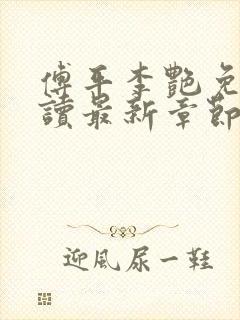 傅平李艷免
讀最新章節
迎風尿一鞋